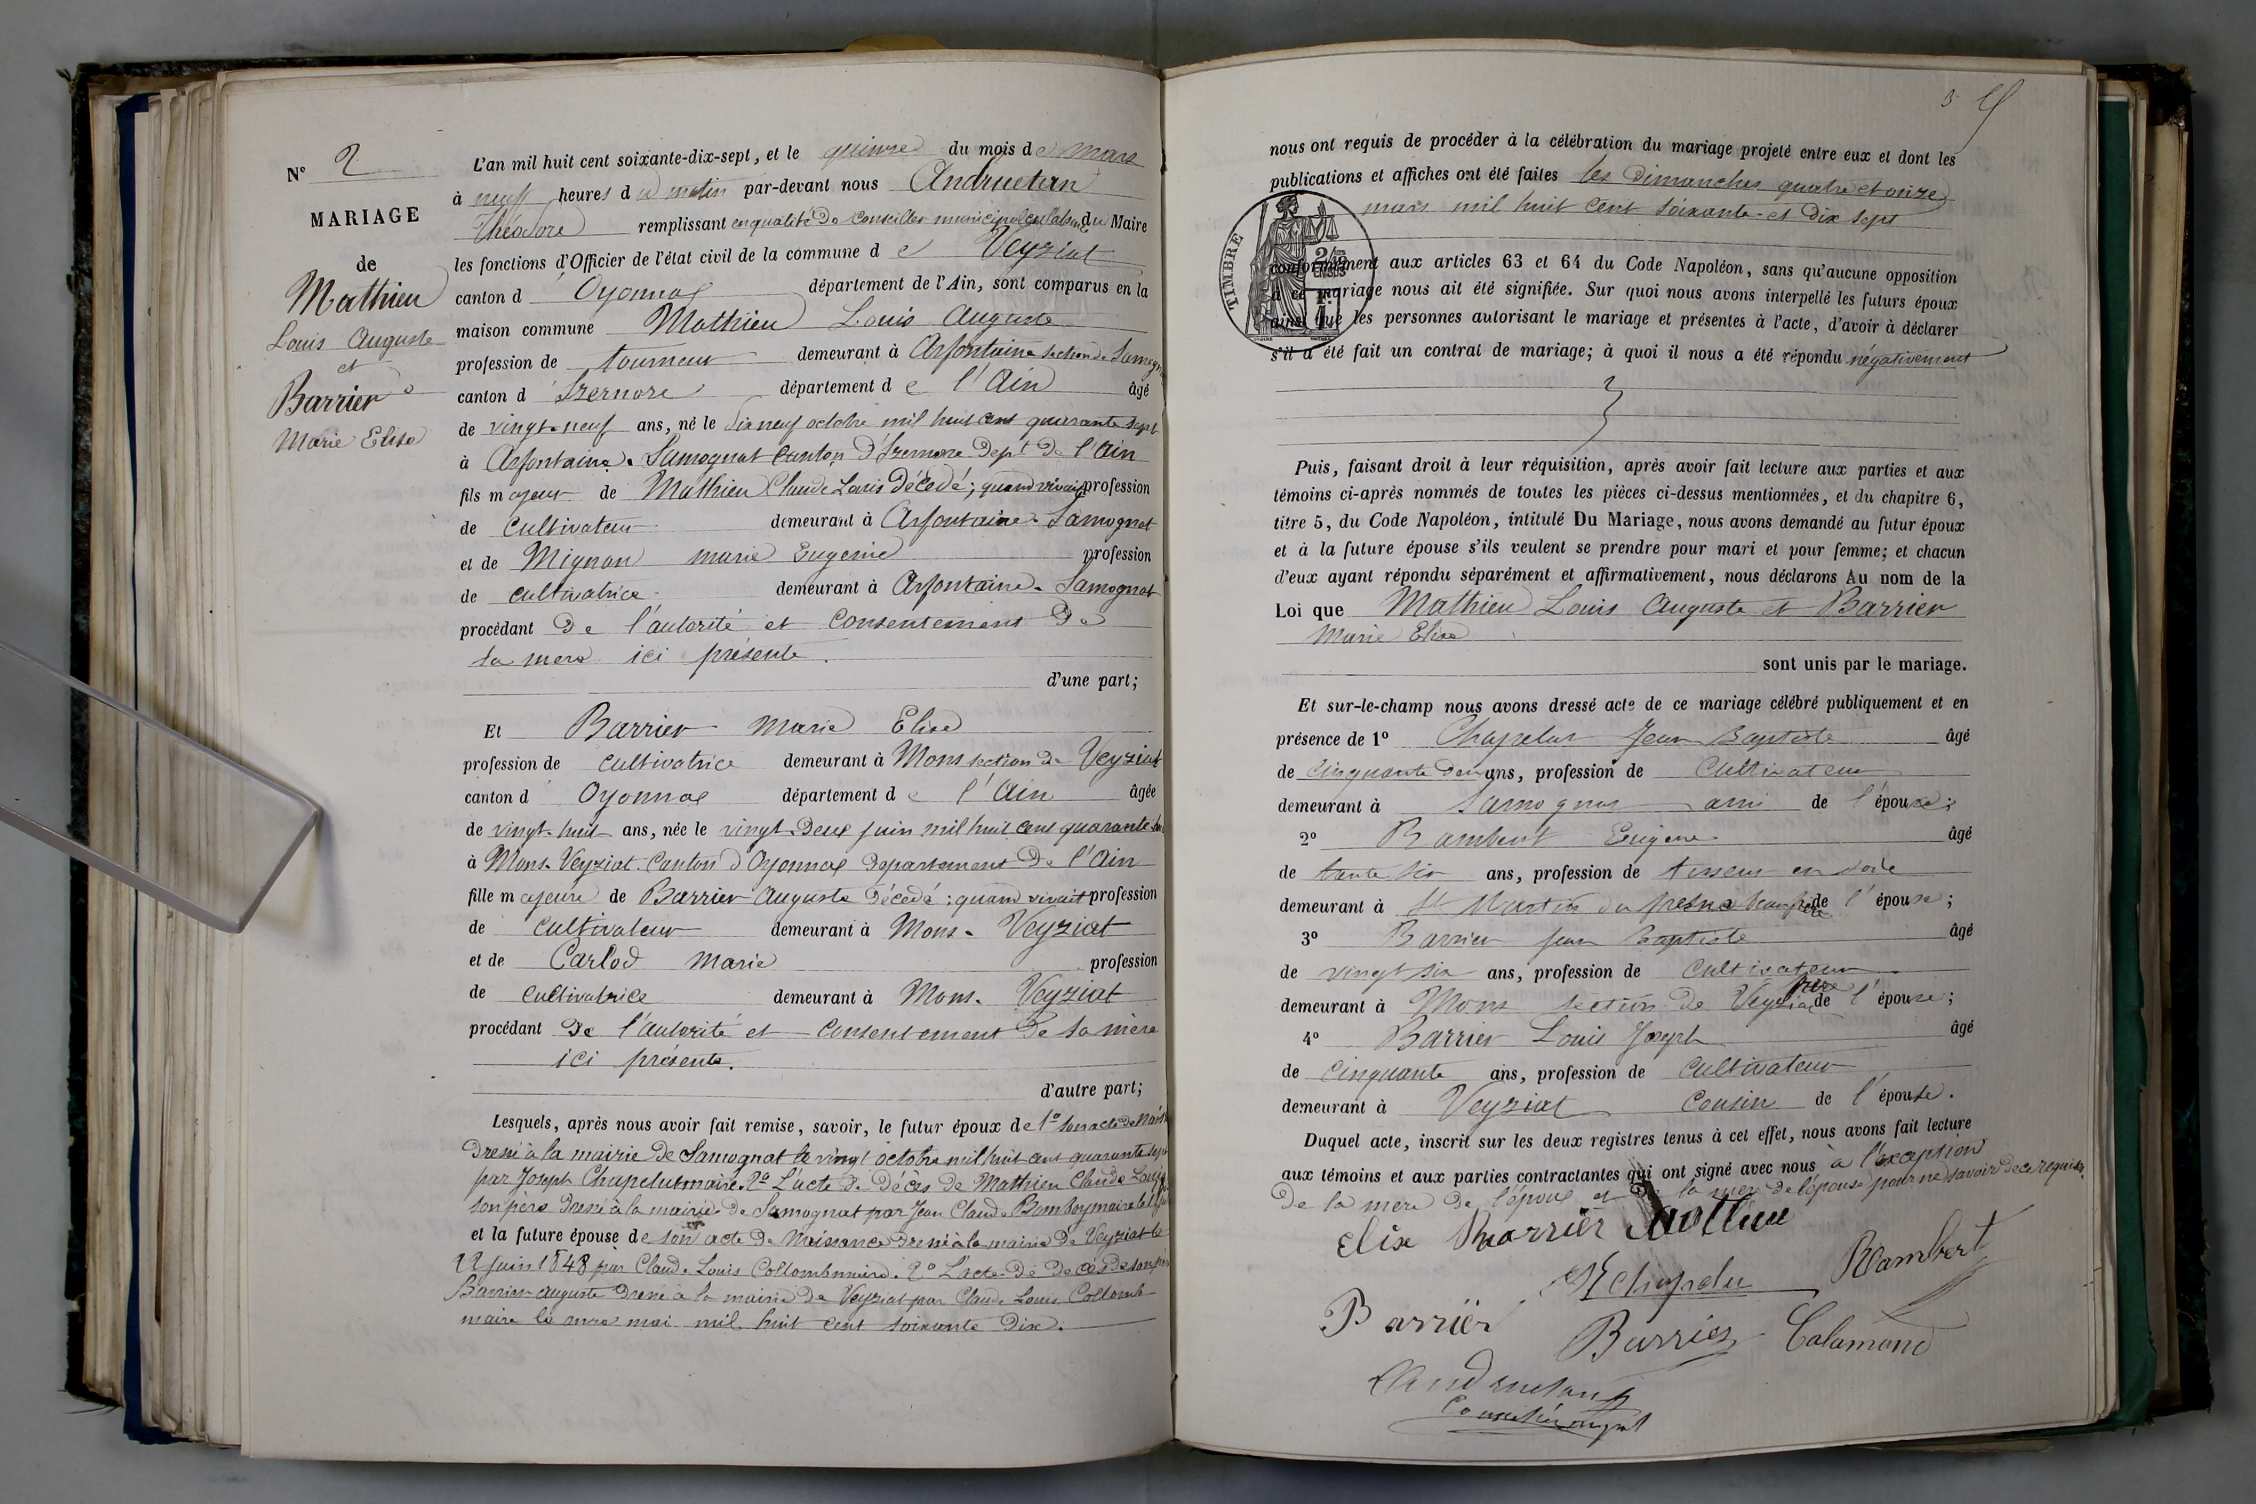 N° 2
MARIAGE
de
Mathieu
Louis Auguste
et
Barrier
Marie Elise
L'an mil huit cent soixante-dix-sept, et le quinze du mois de mars
à neuf heures du matin par-devant nous Andruetan
Théodore remplissant en qualité de conseiller municipal en l'absence du Maire
les fonctions d'Officier de l'état civil de la commune de Veyziat
canton d'Oyonnax département de l'Ain, sont comparus en la
maison commune Mathieu Louis Auguste
profession de tourneur demeurant à Arfontaine section de Samognat
canton d'Izernore département de l'Ain âgé
de vingt-neuf ans, né le dix neuf octobre mil huit cent quarante sept
à Arfontaine. Samognat canton d'Izernore dept de l'Ain
fils majeur de Mathieu Claude Louis décédé; quand vivait profession
de cultivateur demeurant à Arfontaine. Samognat
et de Mignon marie Eugenie profession
de cultivatrice demeurant à Arfontaine. Samognat
procédant de l'autorité et consentement de
sa mere ici présente.
d'une part;
Et Barrier Marie Elise
profession de cultivatrice demeurant à Mons section de Veyziat
canton d'Oyonnax département de l'Ain âgée
de vingt-huit ans, née le vingt-deux juin mil huit cent quarante huit
à Mons. Veyziat. Canton d'Oyonnax département de l'Ain
fille majeure de Barrier Auguste décédé; quand vivait profession
de cultivateur demeurant à Mons. Veyziat
et de Carlod Marie profession
de cultivatrice demeurant à Mons. Veyziat
procédant de l'autorité et consentement de sa mère
ici présente.
d'autre part;
Lesquels, après nous avoir fait remise, savoir, le futur époux de 1° son acte de Naiss
dressé à la mairie de Samognat le vingt octobre mil huit cent quarante sept
par Joseph Chapelut maire. 2° L'acte de décès de Mathieu Claude Louis
son père dressé à la mairie de Samognat par Jean Claude maire le
et la future épouse de son acte de Naissance dressé à la mairie de Veyziat le
22 juin 1848 par Claude Louis Collomb maire. 2° L'acte de décès de son père
Barrier Auguste dressé à la mairie de Veyziat par Claude Louis Collomb
maire le onze mai mil huit cent soixante dix.
3
nous ont requis de procéder à la célébration du mariage projeté entre eux et dont les
publications et affiches ont été faites les Dimanches quatre et onze
mars mil huit cent soixante et dix sept
TIMBRE
conformément aux articles 63 et 64 du Code Napoléon, sans qu'aucune opposition
à ce mariage nous ait été signifiée. Sur quoi nous avons interpellé les futurs époux
ainsi que les personnes autorisant le mariage et présentes à l'acte, d'avoir à déclarer
s'il a été fait un contrat de mariage; à quoi il nous a été répondu négativement
Puis, faisant droit à leur réquisition, après avoir fait lecture aux parties et aux
témoins ci-après nommés de toutes les pièces ci-dessus mentionnées, et du chapitre 6,
titre 5, du Code Napoléon, intitulé Du Mariage, nous avons demandé au futur époux
et à la future épouse s'ils veulent se prendre pour mari et pour femme; et chacun
d'eux ayant répondu séparément et affirmativement, nous déclarons Au nom de la
Loi que Mathieu Louis Auguste et Barrier
Marie Elise
sont unis par le mariage.
Et sur-le-champ nous avons dressé acte de ce mariage célébré publiquement et en
présence de 1° Chapelut Jean Baptiste âgé
de cinquante deux ans, profession de Cultivateur
demeurant à Samognat ami de l'épouse;
2° Rambert Eugène âgé
de trente six ans, profession de tisseur en soie
demeurant à St Martin du fresne beau-frère de l'épouse;
3° Barrier jean Baptiste âgé
de vingt six ans, profession de Cultivateur
demeurant à Mons section de Veyziat frère de l'épouse;
4° Barrier Louis Joseph âgé
de cinquante ans, profession de cultivateur
demeurant à Veyziat cousin de l'épouse.
Duquel acte, inscrit sur les deux registres tenus à cet effet, nous avons fait lecture
aux témoins et aux parties contractantes qui ont signé avec nous à l'exception
de la mere de l'époux et de la mere de l'épouse pour ne savoir de ce requises
Elise Barrier Mathieu
Chapelu Rambert
Barrier
Barrier Calamand
Andruetan